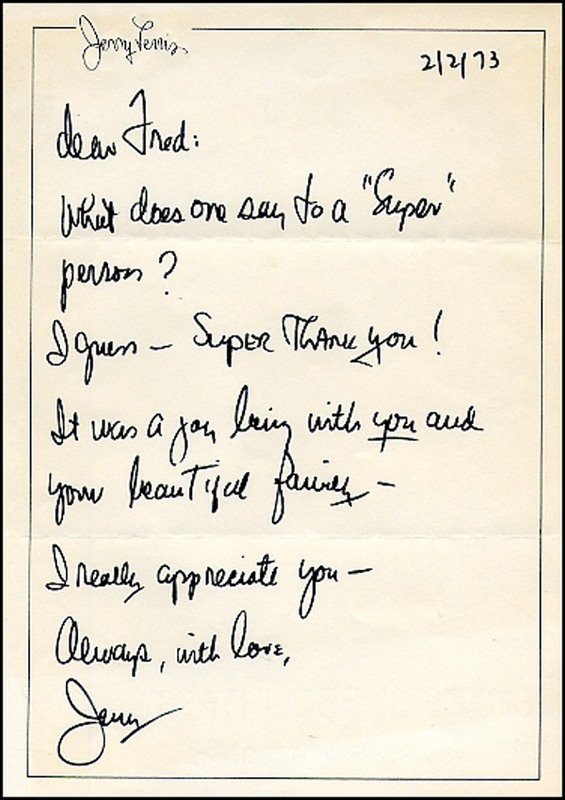 Jerry Lewis
2/2/73
dear Fred:
What does one say to a "Super"
person?
I guess — SUPER THANK you!
It was a joy being with you and
your beautiful family —
I really appreciate you —
Always, with love,
Jerry